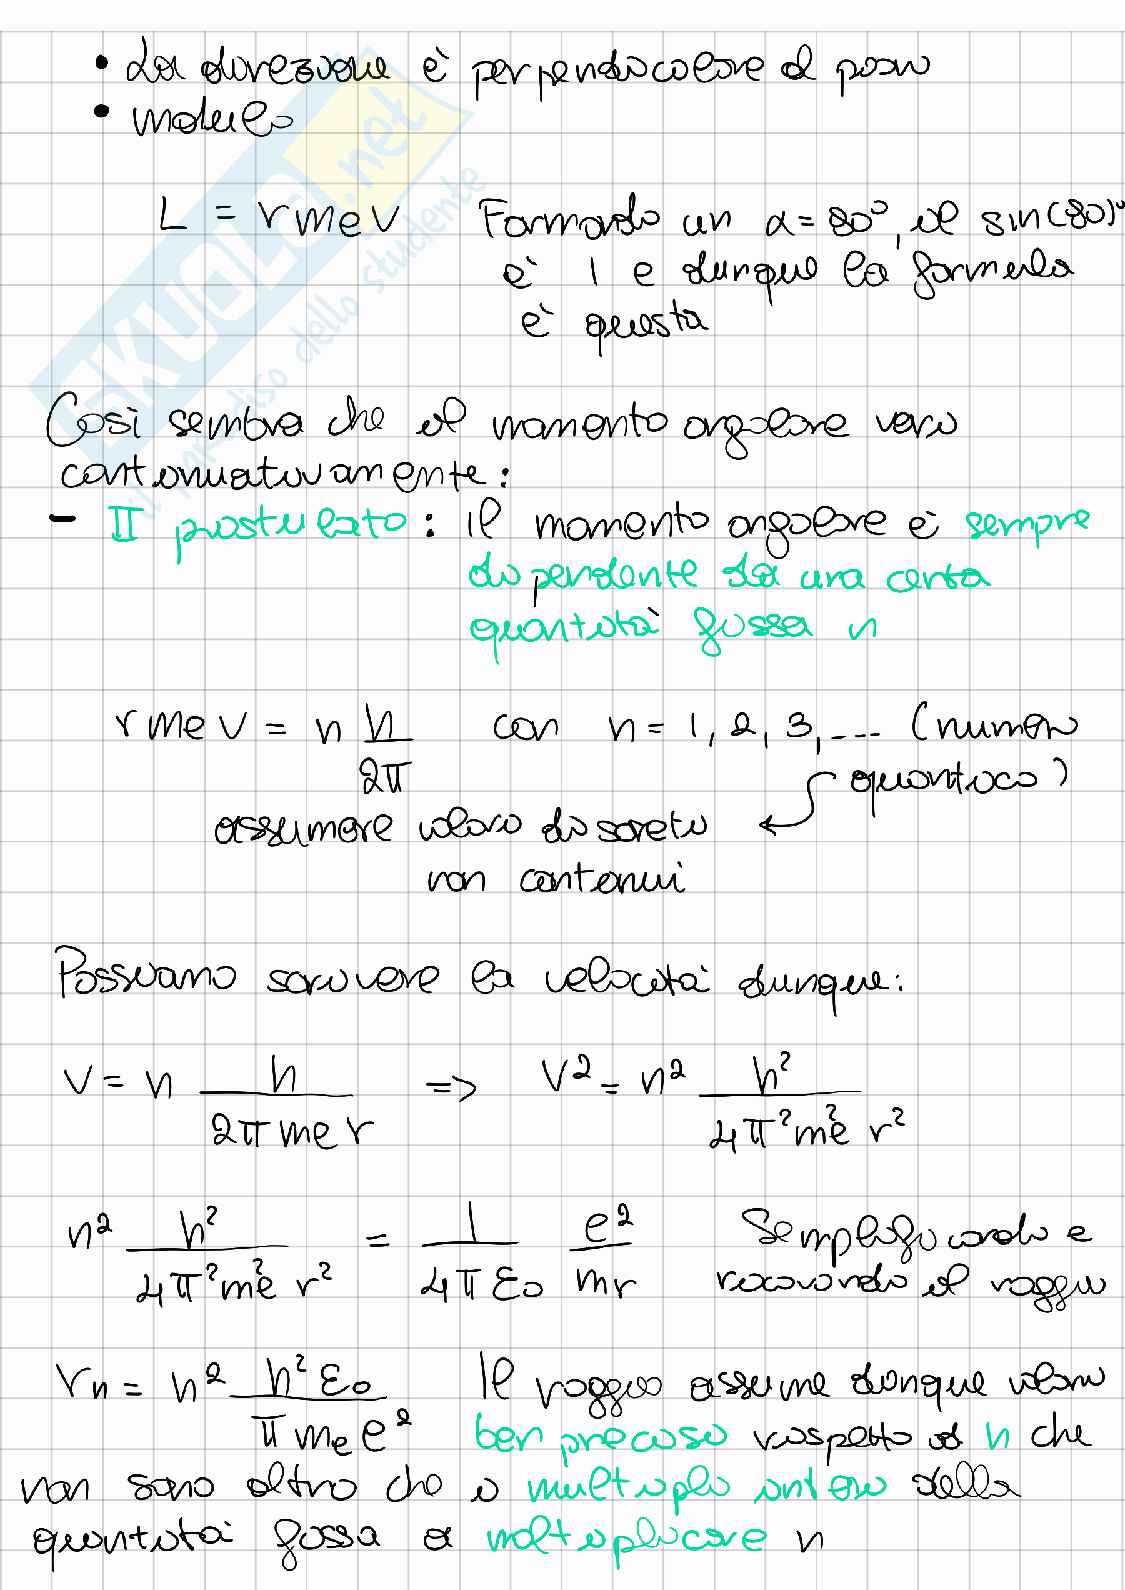 • La direzione è perpendicolare al piano
• modulo
L = r me v Formando un α = 90°, il sin(90)°
è 1 e dunque la formula
è questa
Così sembra che il momento angolare vari
continuativamente:
- II postulato: Il momento angolare è sempre
dipendente da una certa
quantità fissa n
r me v = n h/2π con n = 1, 2, 3, ... (numero
quantico)
assumere valori discreti
non continui
Possiamo scrivere la velocità dunque:
v = n h/(2π me r) => v² = n² h²/(4π² me² r²)
n² h²/(4π² me² r²) = 1/(4π ε0) e²/(mr) Semplificando e
ricavando il raggio
rn = n² h² ε0/(π me e²) Il raggio assume dunque valori
ben precisi rispetto ad n che
non sono altro che i multipli interi della
quantità fissa a moltiplicare n
SKUOLA.net
dello studente